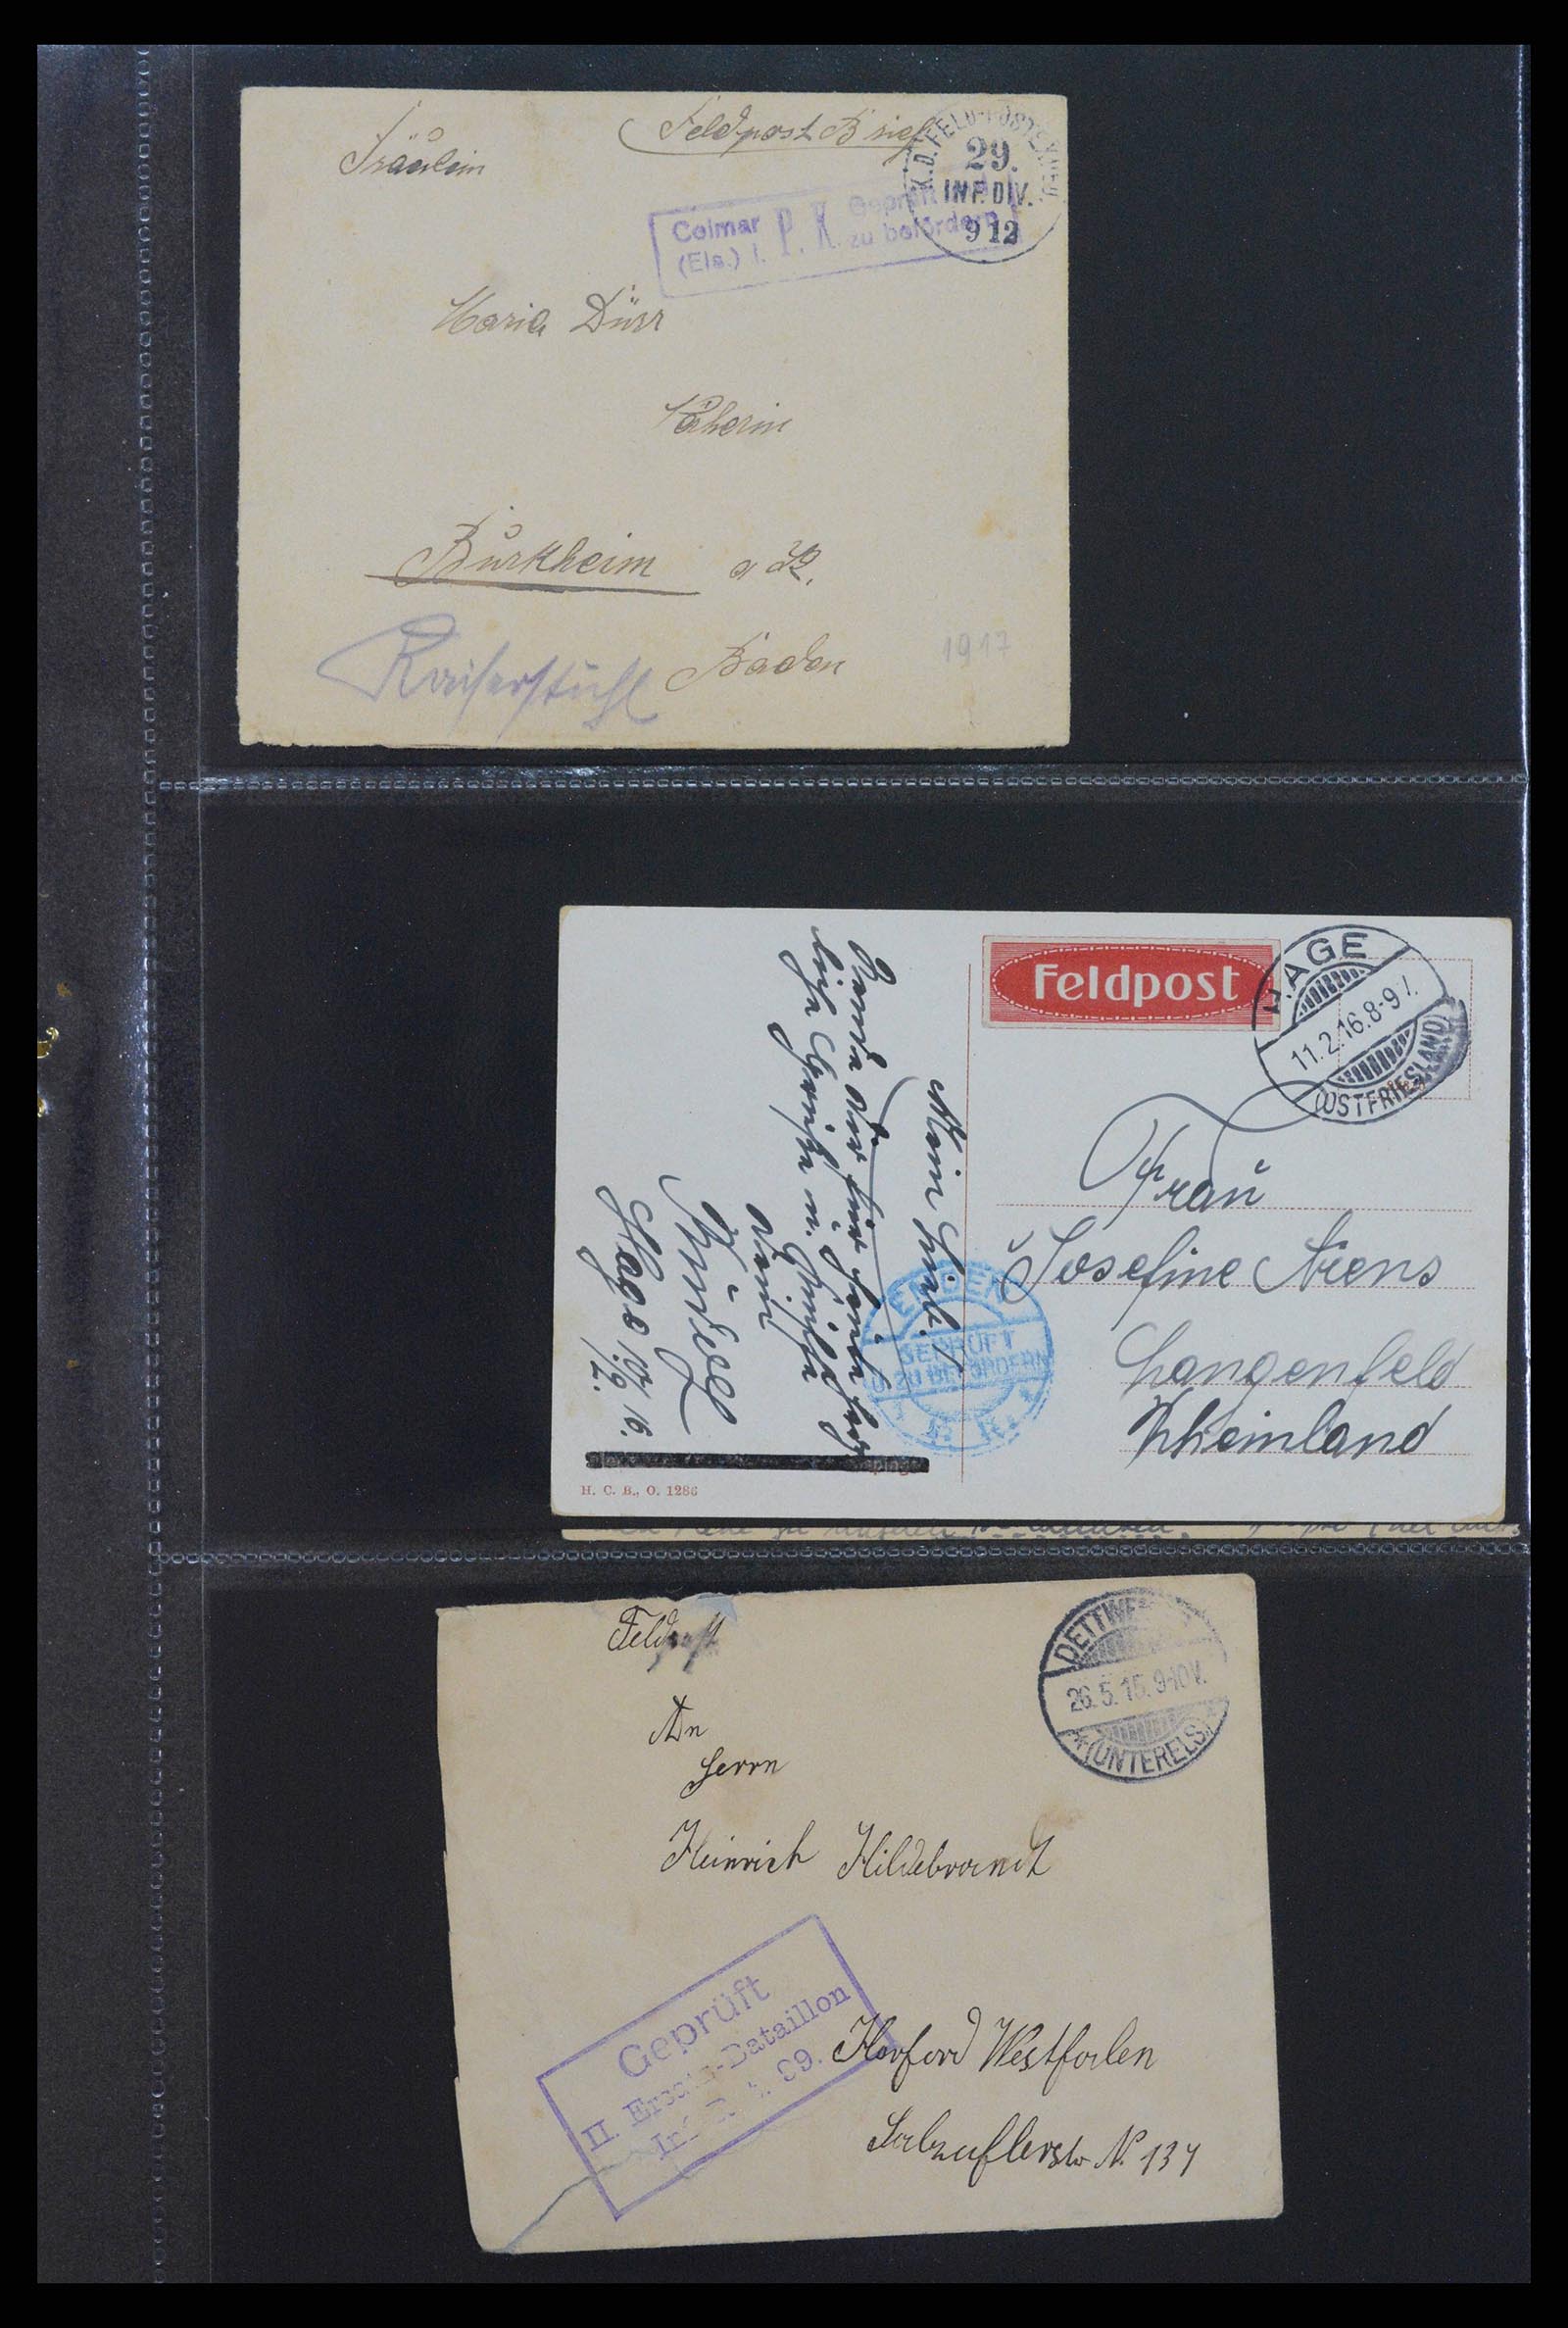 Feldpost Brief
Fräulein
K.D. FELD-POSTEXPED.
29.
INF. DIV.
9 12
Colmar P. K. Geprüft und
(Els.) I. zu befördern
Maria Dürr
Burkheim a R.
Baden
Kaiserstuhl
1917
Feldpost
HAGE
11.2.16.8-9
(OSTFRIESLAND)
Frau
Josefine Niens
Langenfeld
Rheinland
EMDEN
GEPRÜFT
U. ZU BEFÖRDERN
P. K.
Mein Liebl.!
Grüße u.
Dein
Hage
H. C. B., O. 1286
Feldpost
DETTWE
26.5.15.9-10V.
*(UNTERELS.)*
An
Herrn
Heinrich Hildebrandt
Geprüft
II. Ersatz-Bataillon
Inf. 99.
Herford Westfalen
Salzuflerstr N. 137